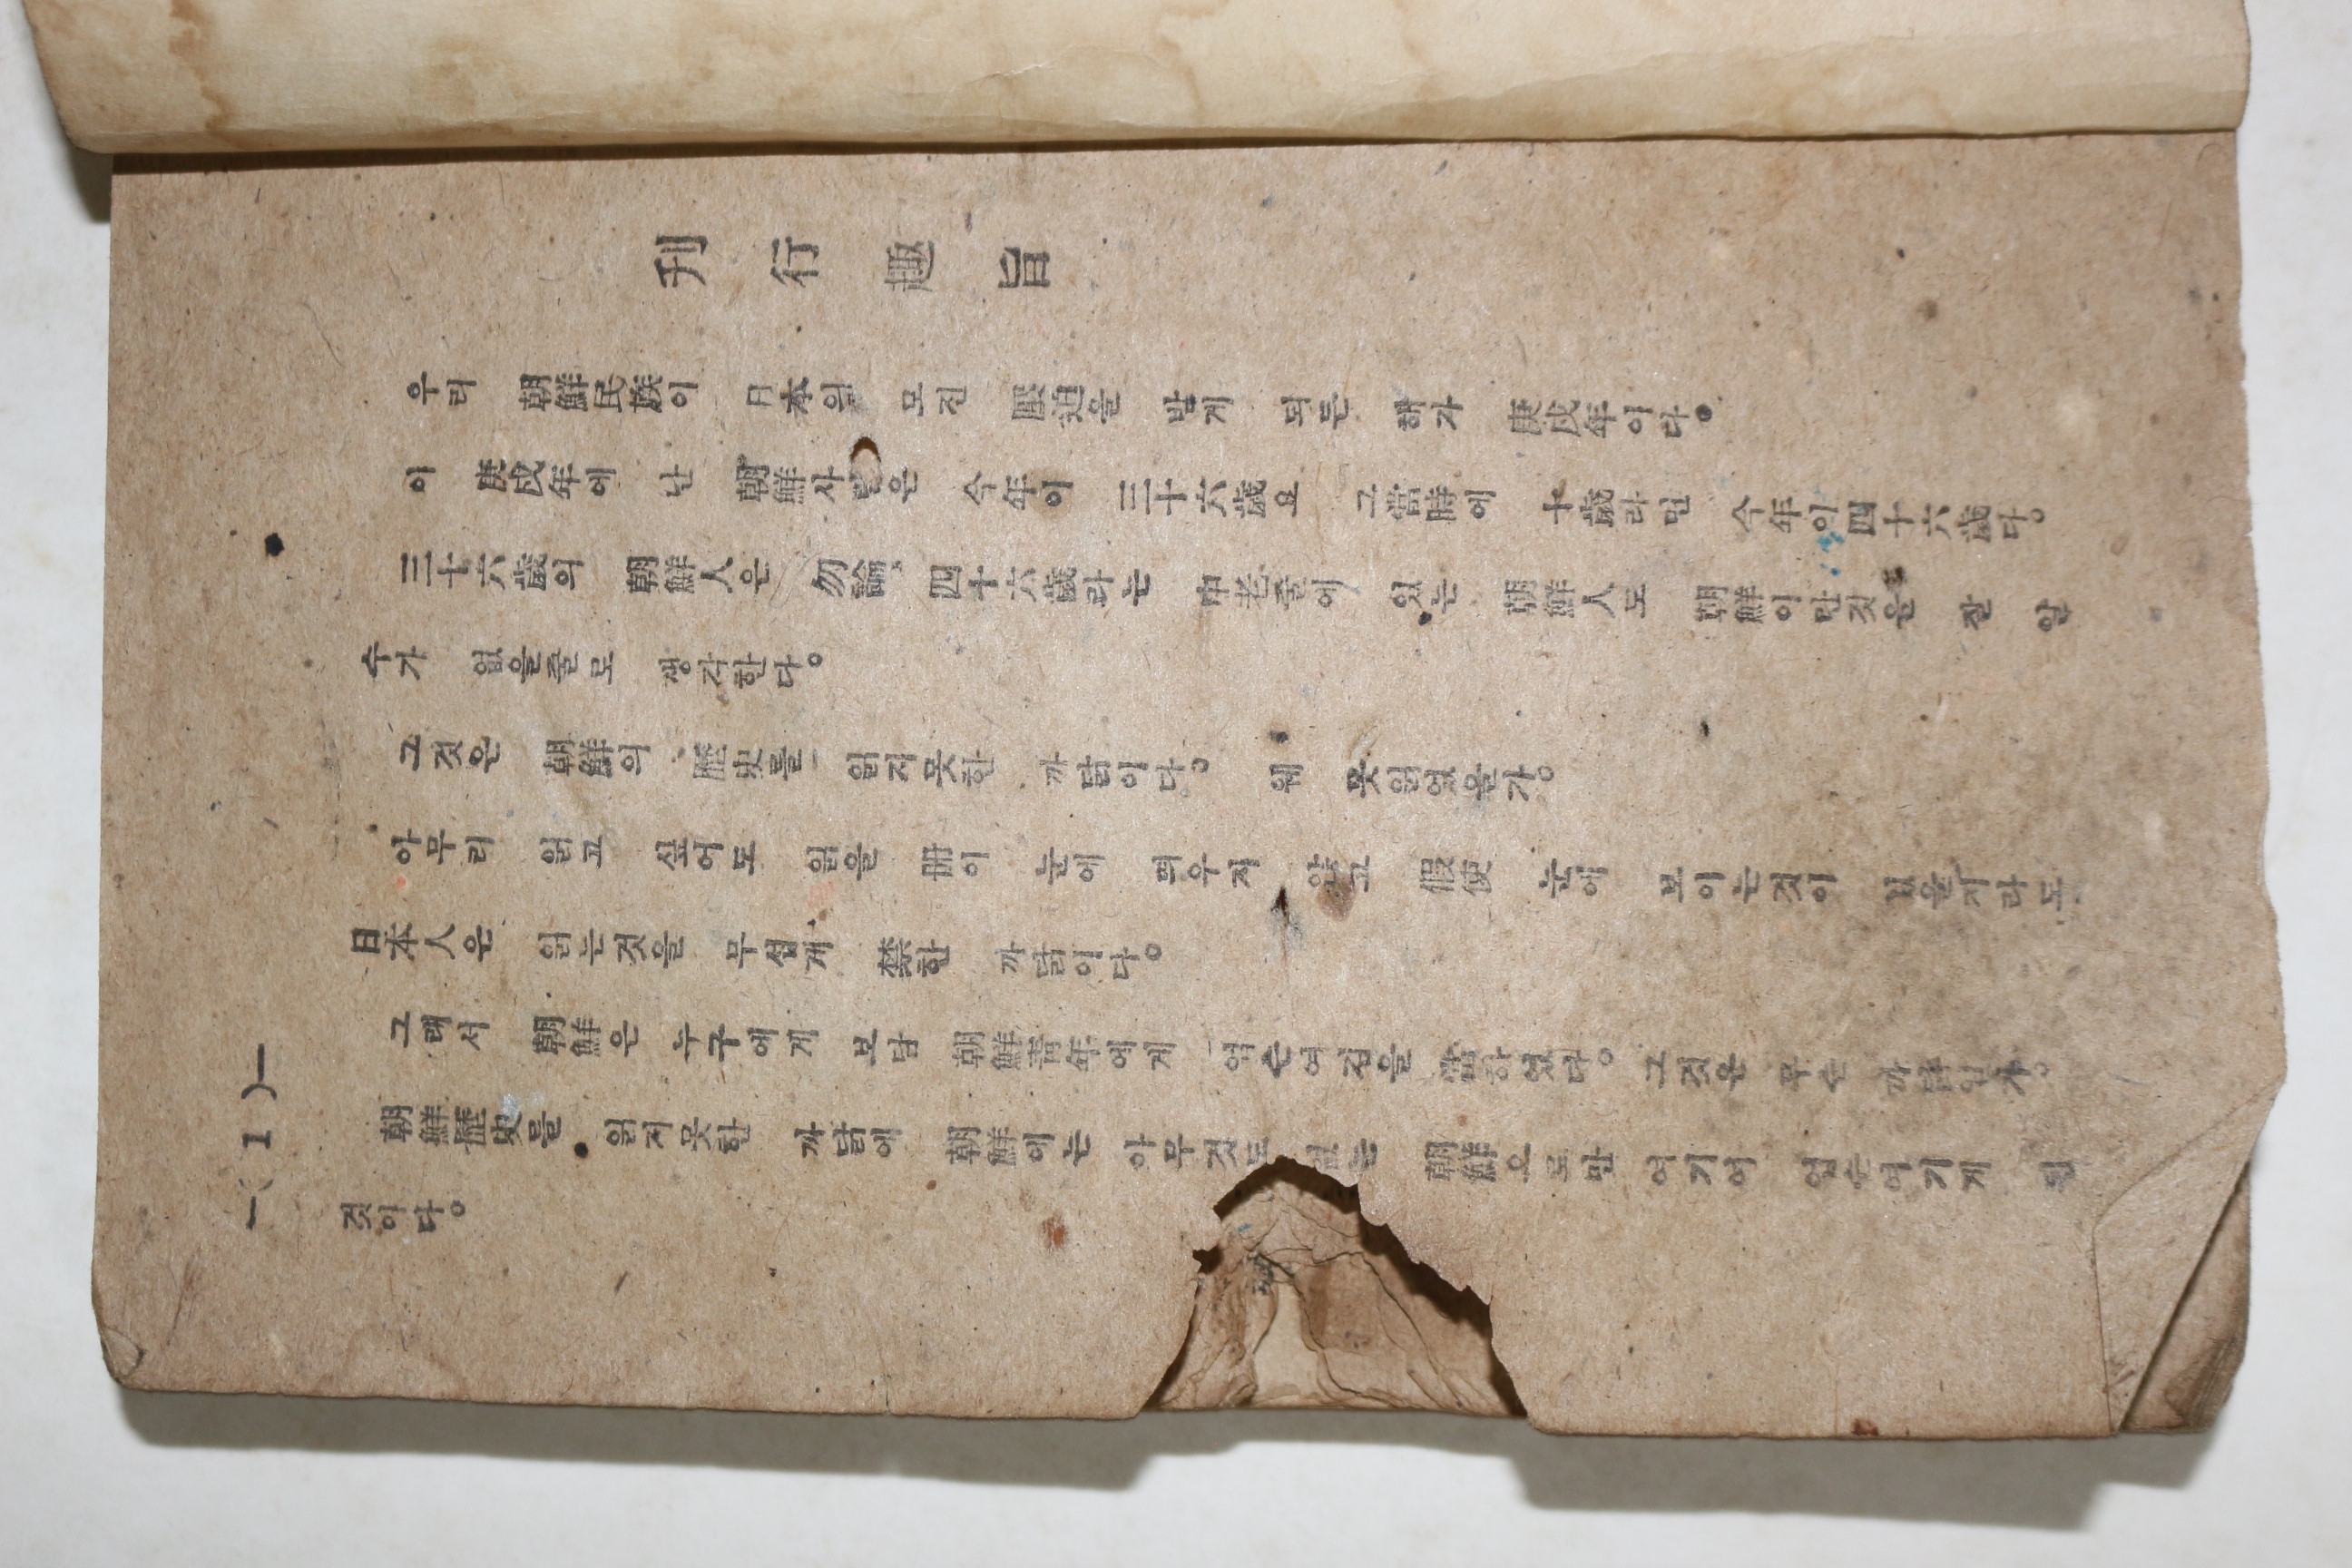 刊行趣旨
우리 朝鮮民族이 日本의 모진 壓迫을 받게 되든 해가 庚戌年이다。
이 庚戌年에 난 朝鮮사람은 今年이 三十六歲요 그當時에 十歲라면 今年이四十六歲다。
三十六歲의 朝鮮人은 勿論、四十六歲라는 中老줄에 있는 朝鮮人도 朝鮮이란것은 잘 알
수가 없을줄로 생각한다。
그것은 朝鮮의 歷史를 읽지못한 까닭이다。 웨 못읽었을가。
아무리 읽고 싶어도 읽을 冊이 눈에 띄우지 않고 假使 눈에 보이는것이 있을지라도
日本人은 읽는것을 무섭게 禁한 까닭이다。
그래서 朝鮮은 누구에게 보담 朝鮮靑年에게 업수여김을 當하였다。 그것은 무슨 까닭인가。
朝鮮歷史를 읽지못한 까닭에 朝鮮에는 아무것도 없는 朝鮮으로만 여기어 업수여기게 된
것이다。
—( 1 )—